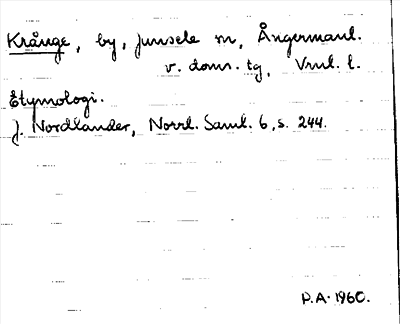 Krånge, by, Junsele sn, Ångermanl.
v. doms. tg, Vnl. l.
Etymologi.
J. Nordlander, Norrl. Saml. 6, s. 244.
P.A. 1960.